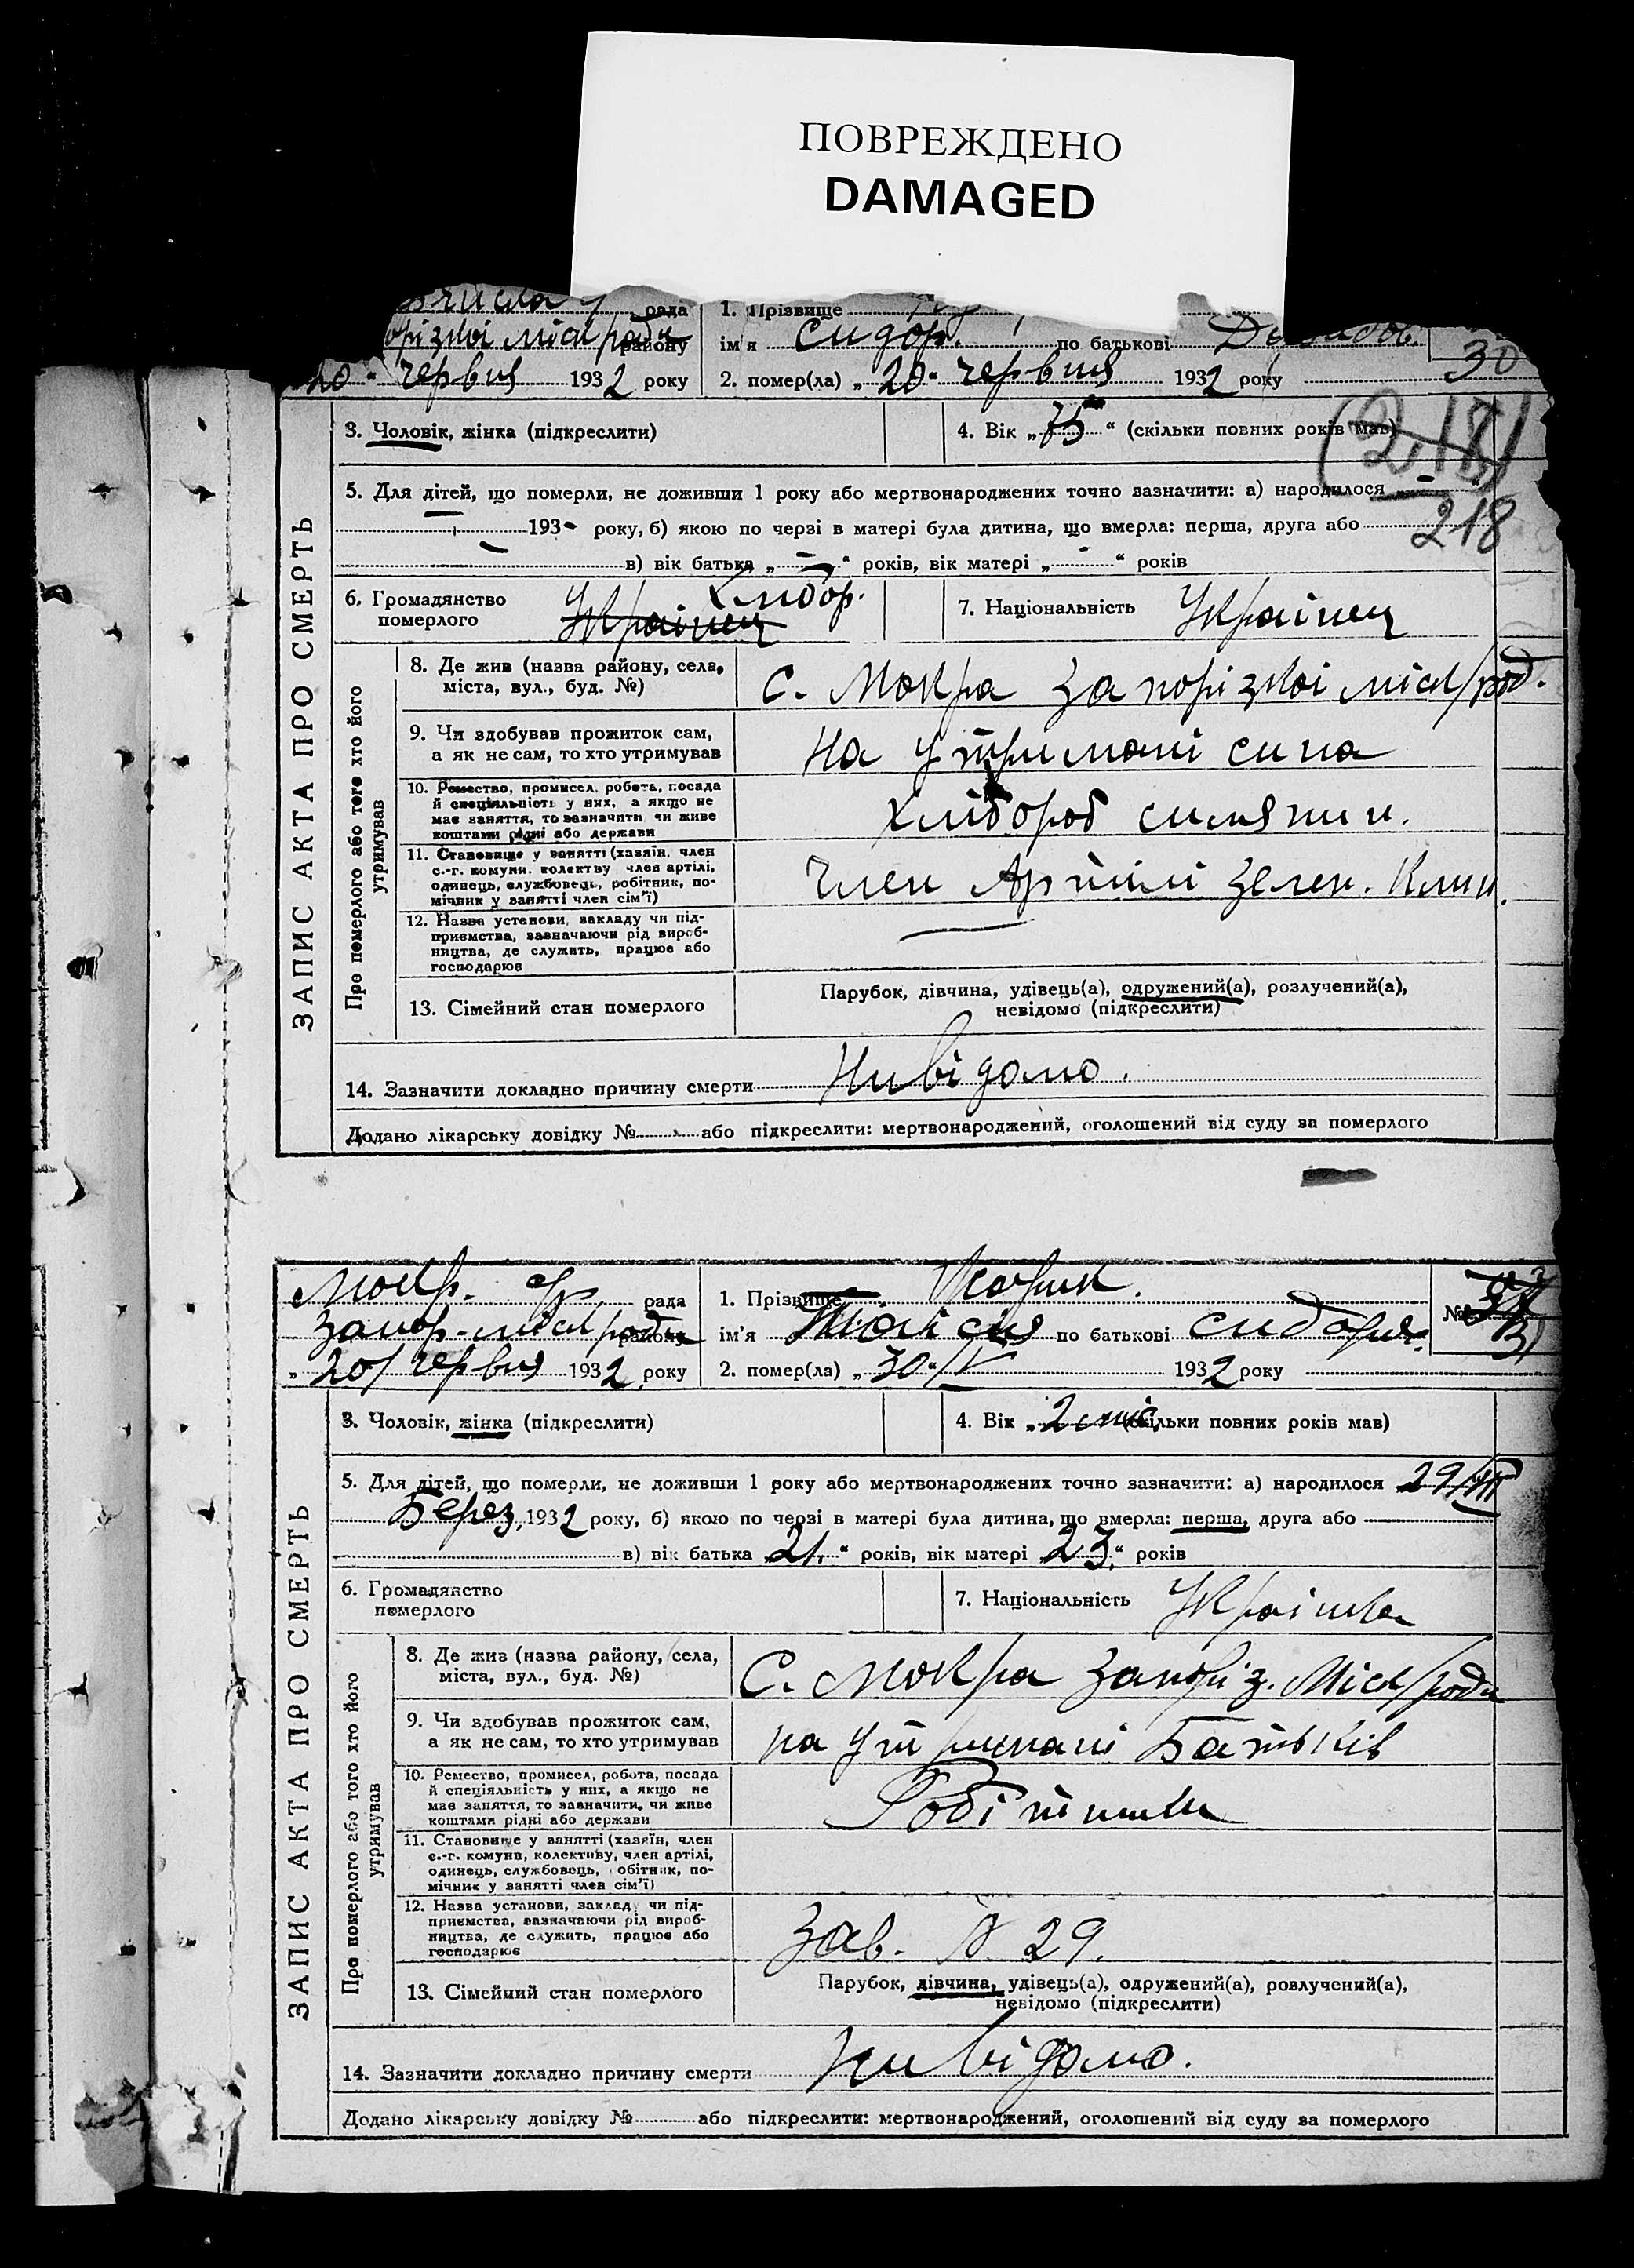 ПОВРЕЖДЕНО
DAMAGED
рада
1. Прізвище
міськ/ради району
ім'я Сидор. по батькові
30
20 " червня 1932 року
2. помер(ла) „ 20 " червня 1932 року
ЗАПИС АКТА ПРО СМЕРТЬ
3. Чоловік, жінка (підкреслити)
4. Вік „ 75 “ (скільки повних років мав)
(218)
5. Для дітей, що померли, не доживши 1 року або мертвонароджених точно зазначити: а) народилося -
218
193- року, б) якою по черзі в матері була дитина, що вмерла: перша, друга або
в) вік батька „ - “ років, вік матері „ - “ років
6. Громадянство померлого
Хлібор.
Украінец
7. Національність Украінец
Про померлого або того хто його утримував
8. Де жив (назва району, села, міста, вул., буд. №)
С. Мокра Запорізкоі міськ/рад.
9. Чи здобував прожиток сам, а як не сам, то хто утримував
На утримані сина
10. Ремество, промисел, робота, посада й спеціяльність у них, а якщо не має заняття, то зазначити, чи живе коштами рідні або держави
Хлібороб силянин.
11. Становище у занятті (хазяїн, член с.-г. комуни, колективу, член артілі, одинець, службовець, робітник, помічник у занятті член сім'ї)
Член Артілі Зелен. Клин.
12. Назва установи, закладу чи підприємства, зазначаючи рід виробництва, де служить, працює або господарює
13. Сімейний стан померлого
Парубок, дівчина, удівець(а), одружений(а), розлучений(а), невідомо (підкреслити)
14. Зазначити докладно причину смерти Нивідомо.
Додано лікарську довідку № або підкреслити: мертвонароджений, оголошений від суду за померлого
Мокр. с/р. рада
1. Прізвище
№ 31
Запор. міськ/ради району
ім'я Таісія по батькові Сидорів.
„ 20/ червня 1932 року
2. помер(ла) „ 30 “/V 1932 року
ЗАПИС АКТА ПРО СМЕРТЬ
3. Чоловік, жінка (підкреслити)
4. Вік „ 2 міс. (скільки повних років мав)
5. Для дітей, що померли, не доживши 1 року або мертвонароджених точно зазначити: а) народилося 29/III
Берез. 1932 року, б) якою по черзі в матері була дитина, що вмерла: перша, друга або
в) вік батька „ 21. “ років, вік матері „ 23. “ років
6. Громадянство померлого
7. Національність Украінка
Про померлого або того хто його утримував
8. Де жив (назва району, села, міста, вул., буд. №)
С. Мокра Запоріз. Міськ/ради
9. Чи здобував прожиток сам, а як не сам, то хто утримував
на утримані Батьків
10. Ремество, промисел, робота, посада й спеціяльність у них, а якщо не має заняття, то зазначити, чи живе коштами рідні або держави
Робітники
11. Становище у занятті (хазяїн, член с.-г. комуни, колективу, член артілі, одинець, службовець, робітник, помічник у занятті член сім'ї)
12. Назва установи, закладу чи підприємства, зазначаючи рід виробництва, де служить, працює або господарює
Зав. № 29.
13. Сімейний стан померлого
Парубок, дівчина, удівець(а), одружений(а), розлучений(а), невідомо (підкреслити)
14. Зазначити докладно причину смерти Нивідомо.
Додано лікарську довідку № або підкреслити: мертвонароджений, оголошений від суду за померлого